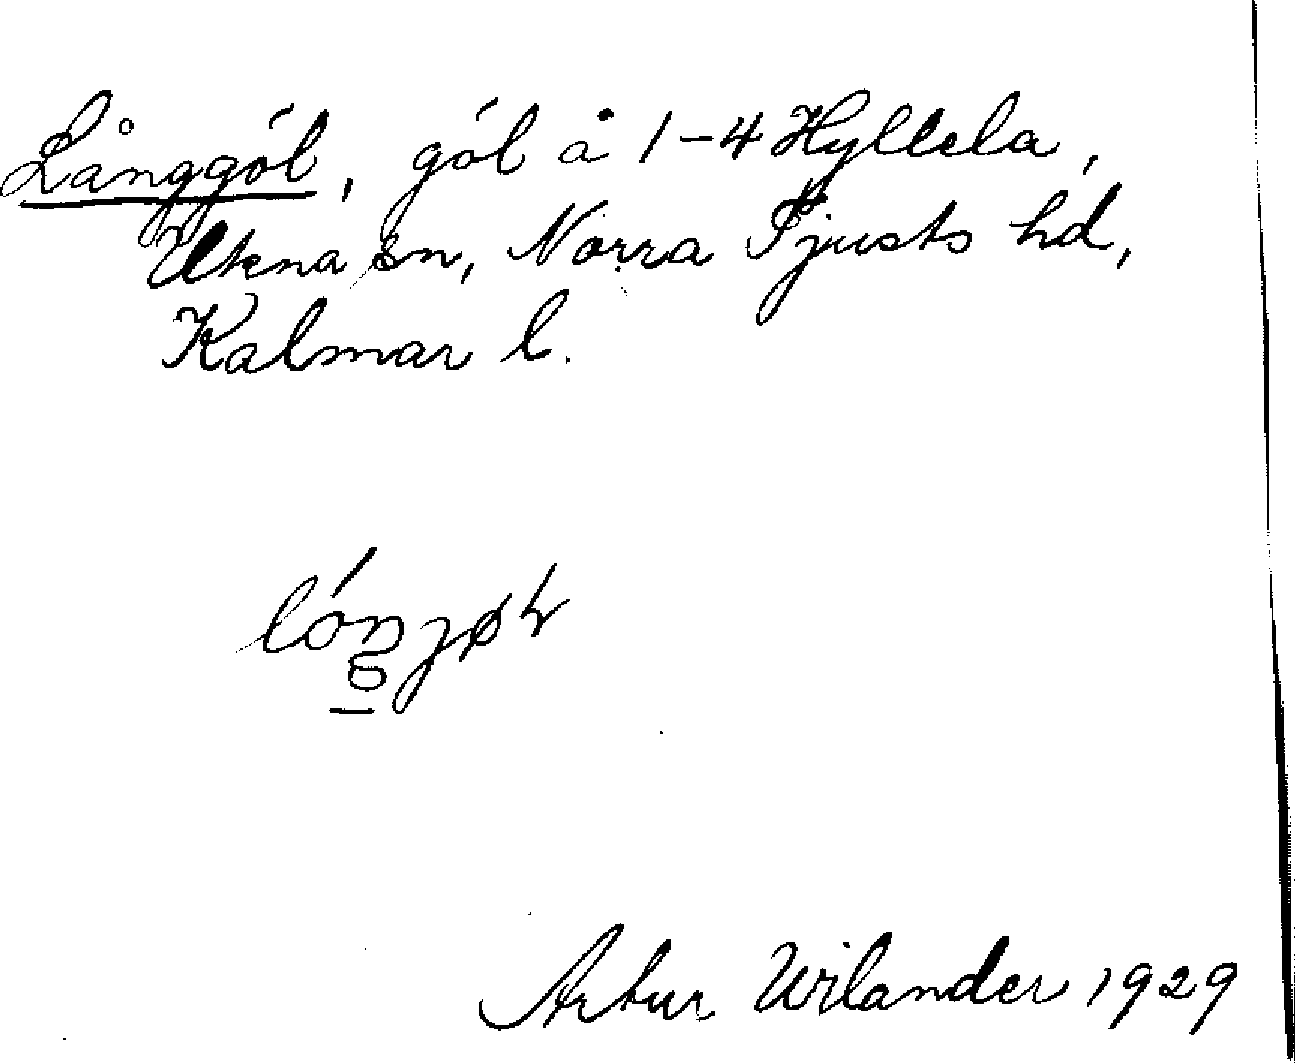 Långgól, gól å 1-4 Hyllela,
Ukna sn, Norra Tjusts hd,
Kalmar l.
Artur Wilander 1929